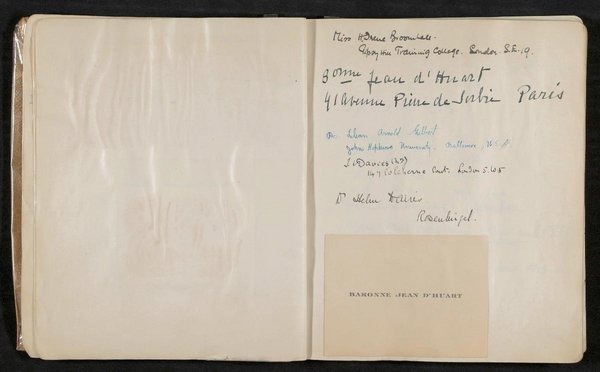 Miss H. Irene Broomhall.
Gipsy Hill Training College. London. S.E. 19.
Bonne Jean d'Huart
41 avenue Pierre de Serbie Paris
Lilian Arnold Gilbert
Johns Hopkins University. Baltimore, U.S.A.
J. Davies
147 Colcherne Court. London S.W.5
Dr Helen Davies
BARONNE JEAN D'HUART